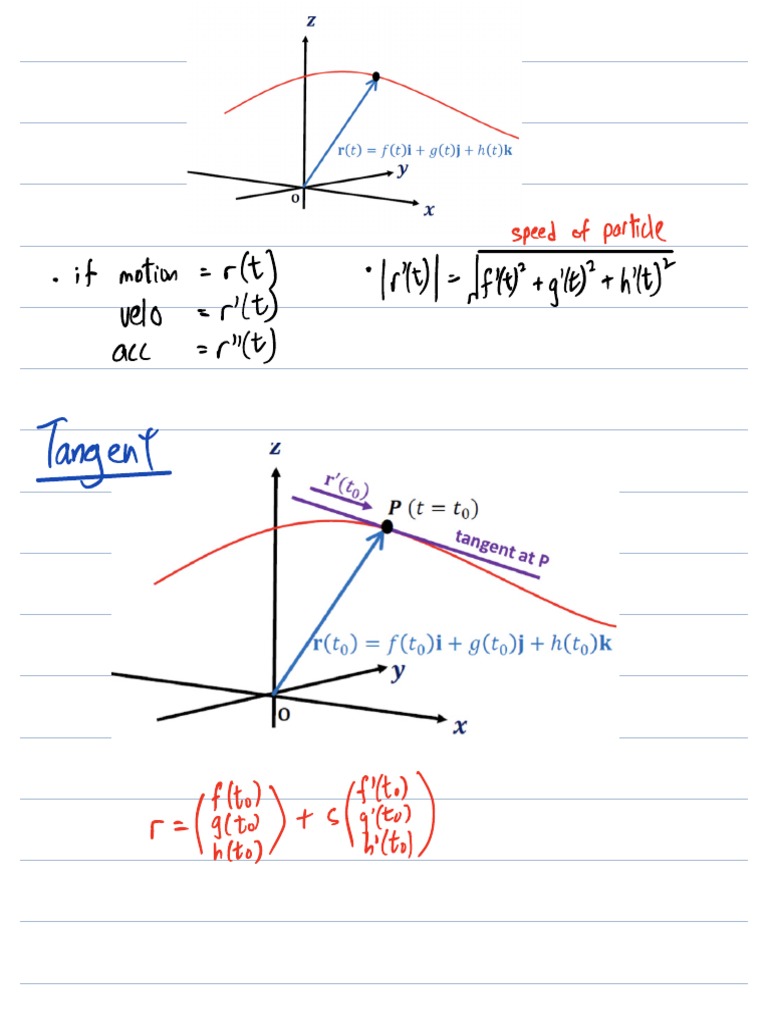 z
r(t) = f(t)i + g(t)j + h(t)k
y
o
x
speed of particle
· if motion = r(t)
velo = r'(t)
acc = r''(t)
· |r'(t)| = √f'(t)² + g'(t)² + h'(t)²
Tangent
z
r′(t₀)
P (t = t₀)
tangent at P
r(t₀) = f(t₀)i + g(t₀)j + h(t₀)k
y
O
x
r = (f(t₀) g(t₀) h(t₀)) + s (f'(t₀) g'(t₀) h'(t₀))